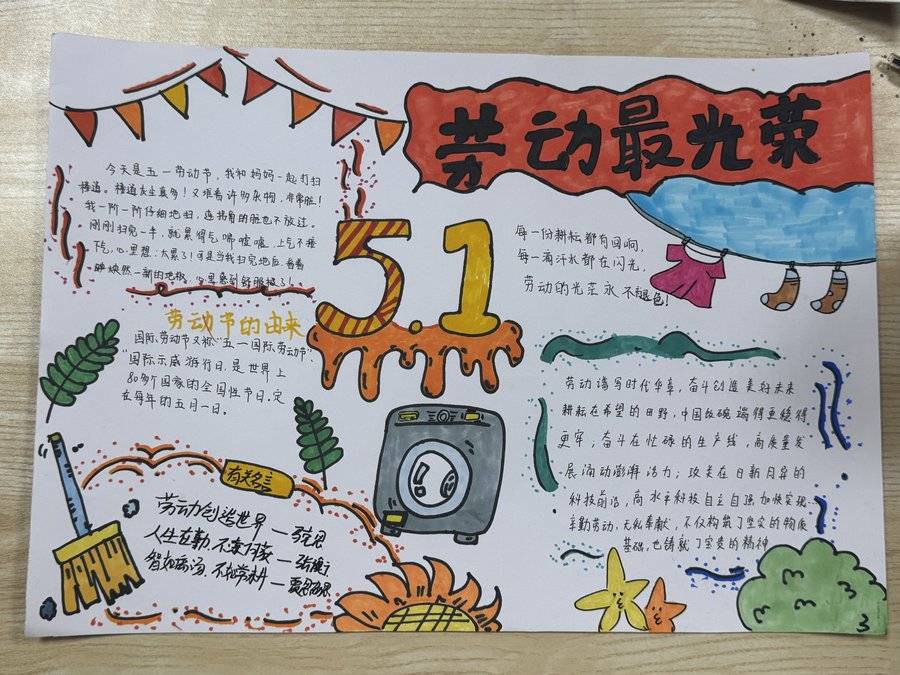 劳动最光荣
今天是五一劳动节，我和妈妈一起打扫
楼道。楼道灰尘真多！又堆着许多杂物，非常脏！
我一阶一阶仔细地扫，连拐角的脏也不放过。
刚刚扫完一半，就累得气喘嘘嘘，上气不接
下气，心里想：太累了！可是当我扫完地后，看着
焕然一新的地板，心里感到舒服极了！
5.1
每一份耕耘都有回响，
每一滴汗水都在闪光，
劳动的光芒永不褪色！
劳动节的由来
国际劳动节又称"五一国际劳动节"
"国际示威游行日，是世界上
80多个国家的全国性节日。定
在每年的五月一日。
有关名言
劳动创造世界—马克思
人生在勤，不索何获—张衡
智如泉涌，不
劳动谱写时代华章，奋斗创造美好未来
耕耘在希望的田野，中国饭碗端得更稳得
更牢；奋斗在忙碌的生产线，高质量发
展涌动澎湃活力；攻关在日新月异的
科技前沿，高水平科技自立自强加快实现
辛勤劳动，无私奉献，不仅构筑了坚实的物质
基础，也铸就了宝贵的精神
3